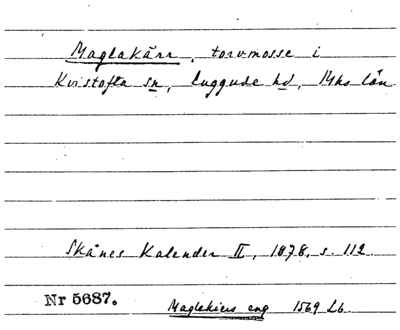 Maglakärr, torvmosse i
Kvistofta sn, Luggude hd, Mhs län
Skånes Kalender II, 1878, s. 112.
Nr 5687. Maglekiers eng 1569 Lb.